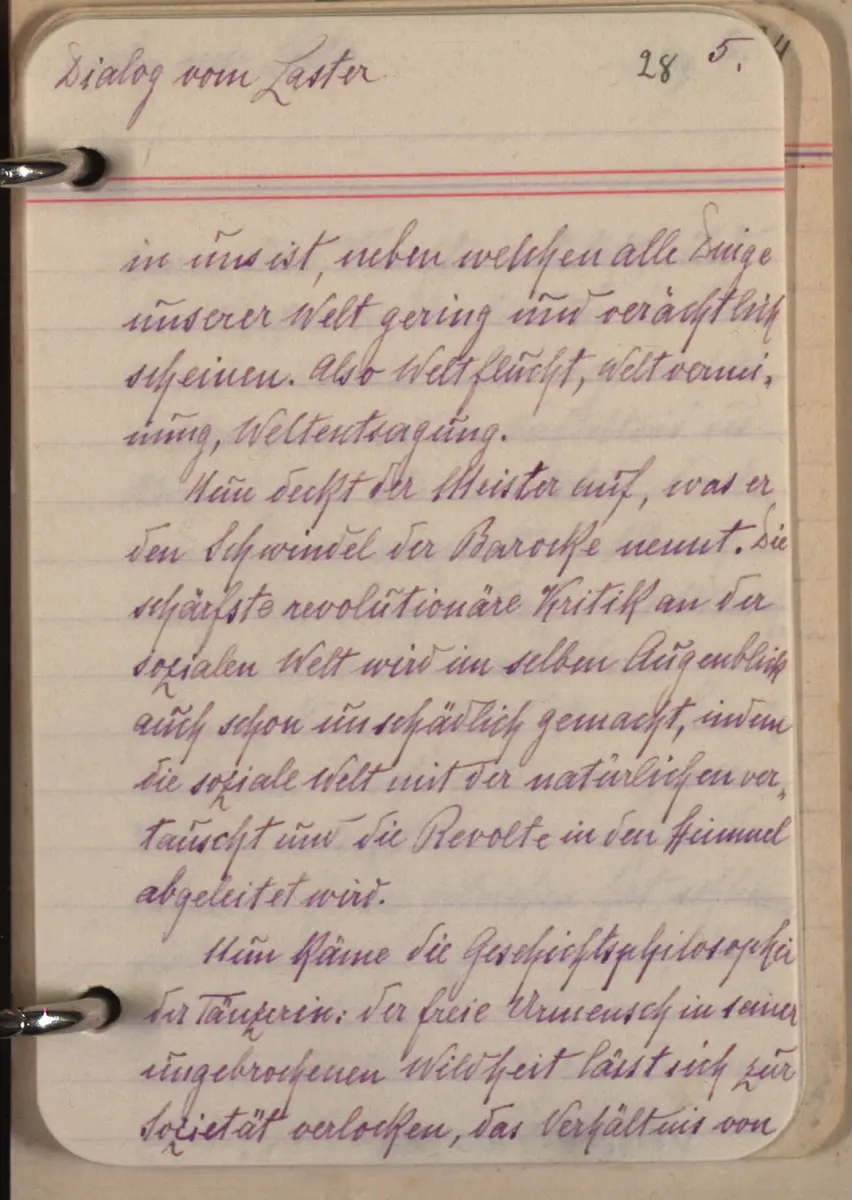 Dialog vom Laster
28 5.
in uns ist, neben welchen alle Dinge
unserer Welt gering und verächtlich
scheinen. Also Weltflucht, Weltvernei-
nung, Weltentsagung.
Nun deckt der Meister auf, was er
den Schwindel der Barocke nennt. Die
schärfste revolutionäre Kritik an der
sozialen Welt wird im selben Augenblick
auch schon unschädlich gemacht, indem
die soziale Welt mit der natürlichen ver-
tauscht und die Revolte in den Himmel
abgeleitet wird.
Nun käme die Geschichtsphilosophie
der Tänzerin: der freie Urmensch in seiner
ungebrochenen Wildheit lässt sich zur
Sozietät verlocken, das Verhältnis von